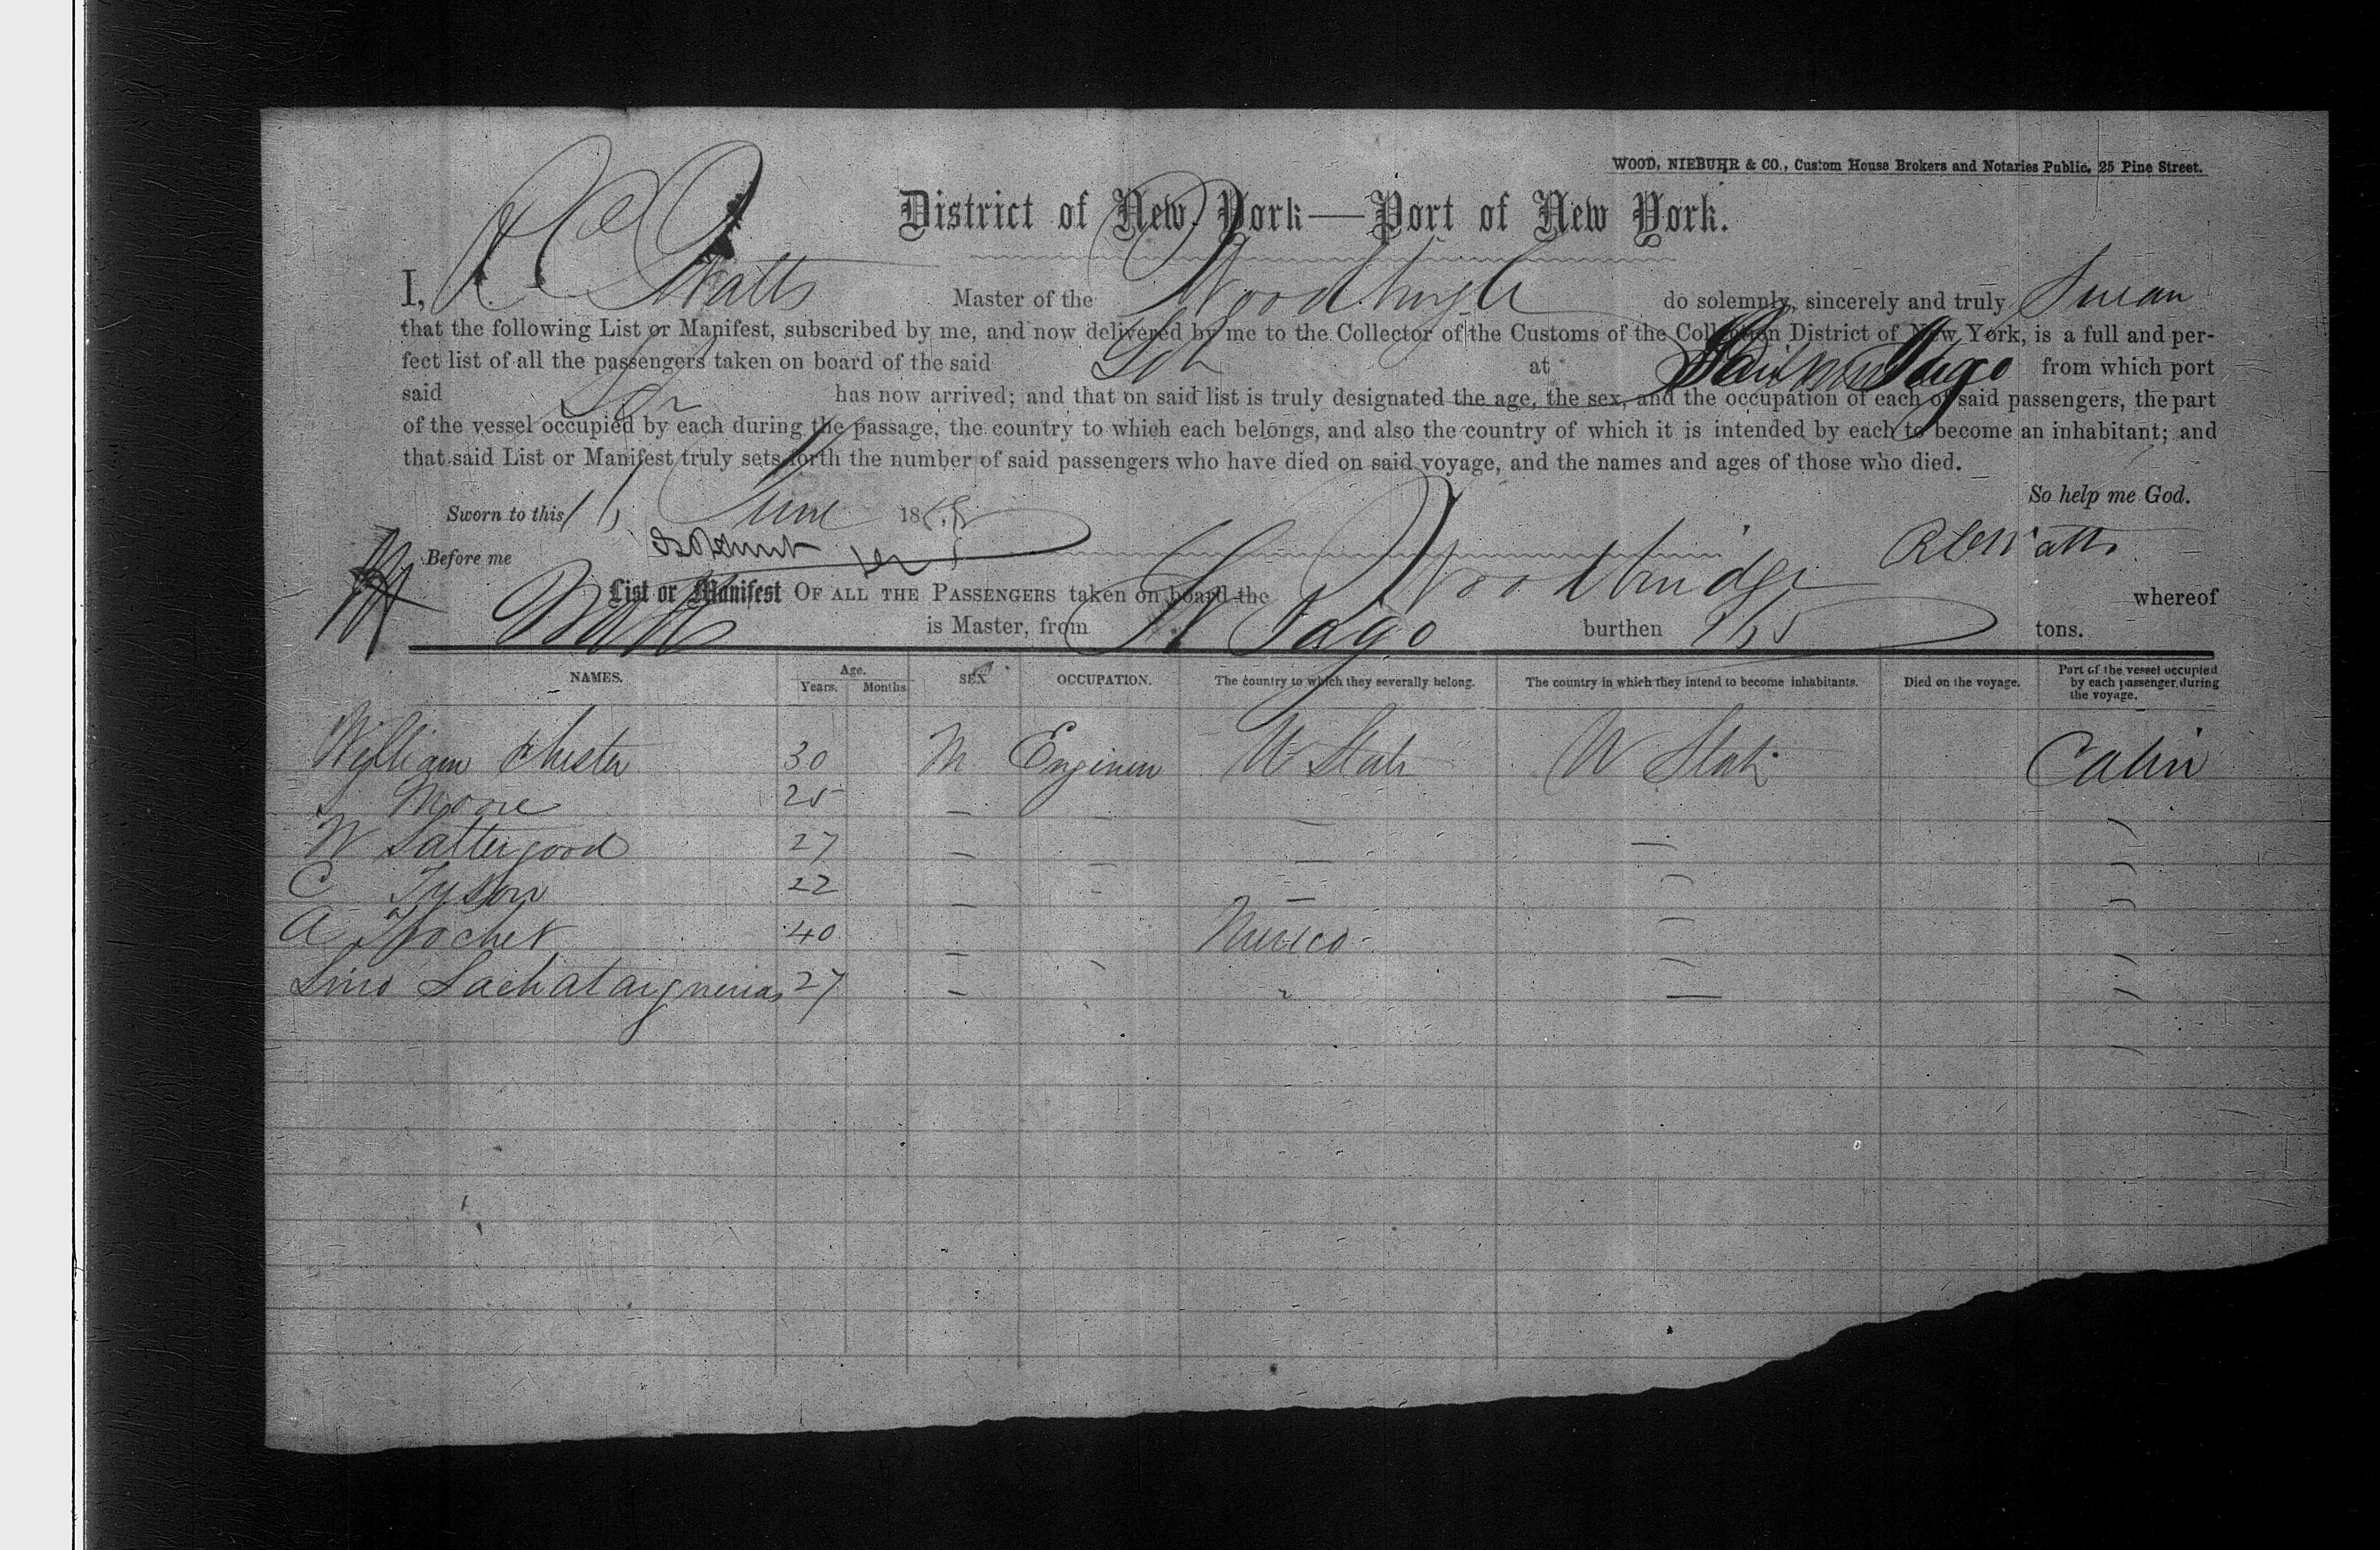 WOOD, NIEBUHR & CO., Custom House Brokers and Notaries Public, 25 Pine Street.
District of New York—Port of New York.
I, R C Watts Master of the Woodbridge do solemnly, sincerely and truly Swear
that the following List or Manifest, subscribed by me, and now delivered by me to the Collector of the Customs of the Collection District of New York, is a full and per-
fect list of all the passengers taken on board of the said Sch at from which port
said Sch has now arrived; and that on said list is truly designated the age, the sex, and the occupation of each of said passengers, the part
of the vessel occupied by each during the passage, the country to which each belongs, and also the country of which it is intended by each to become an inhabitant; and
that said List or Manifest truly sets forth the number of said passengers who have died on said voyage, and the names and ages of those who died.
So help me God.
Sworn to this June 18
Before me R C Watts
List or Manifest OF ALL THE PASSENGERS taken on board the Woodbridge whereof
Watts is Master, from St Jago burthen tons.
NAMES. Age. Years. Months. SEX. OCCUPATION. The country to which they severally belong. The country in which they intend to become inhabitants. Died on the voyage. Part of the vessel occupied by each passenger during the voyage.
William Chester 30 M Engineer U State U State Cabin
Moore 25 — —
W Sattergood 27 — — — —
C Tyson 22 — — — —
A Trochet 40 — Mexico — —
Lino Lachataignerias 27 — " — —